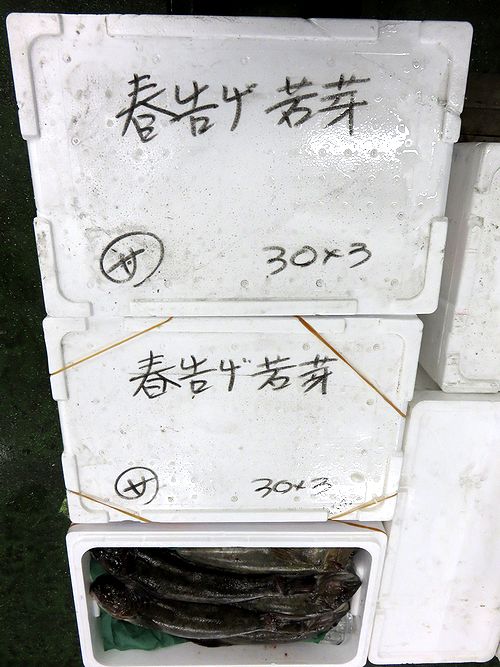 春告げ若芽
サ 30×3
春告げ若芽
サ 30×3